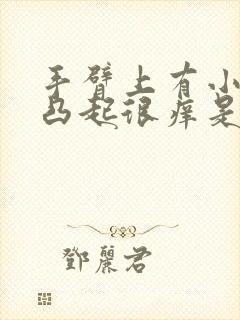 手臂上有小
凸起很痒是
鄧麗君